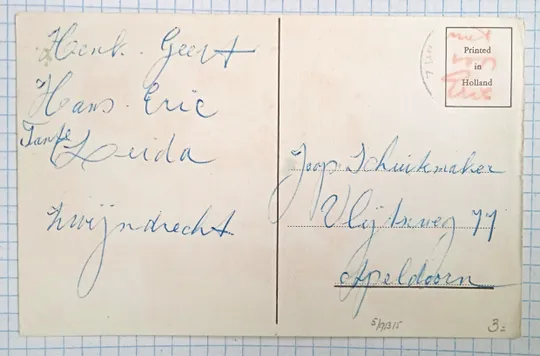 Henk. Geert
Hans. Eric
Tante
Leida
Zwijndrecht
Printed
in
Holland
met
Eric
Joop Schuikmaker
Vlijtseweg 77
Apeldoorn
3=